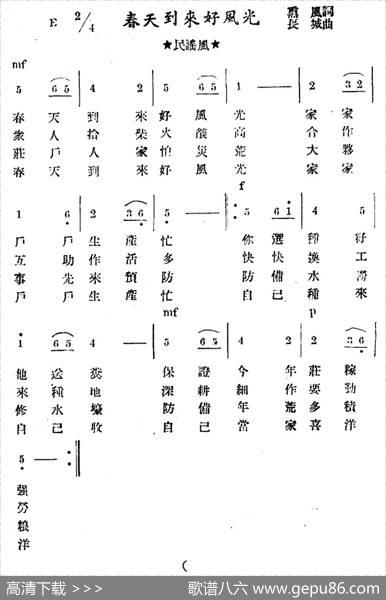 春天到來好風光
E 2/4
★民謠風★
熏風詞
長城曲
mf
5 65 4 2 5 65 1 — 2 32
春 天 到 來 好 風 光 家 家
衆 人 拾 柴 火 燄 高 合 作
莊 戶 人 家 怕 災 荒 大 夥
春 天 到 來 好 風 光 家 家
f
1 6 2 36 5 — 5 61 4 5
戶 戶 生 產 忙 你 選 種 籽
互 助 作 活 多 快 快 換 工
事 先 來 預 防 防 備 水 澇
戶 戶 生 產 忙 自 己 種 來
mf p
1 65 4 — 5 65 4 2 2 36
他 送 糞 保 證 今 年 莊 稼
來 種 地 深 耕 細 作 要 勤
修 水 壕 防 備 年 荒 多 積
自 己 收 自 己 當 家 喜 洋
5 —
强
勞
粮
洋
高清下载 >>> 歌谱八六 www.gepu86.com